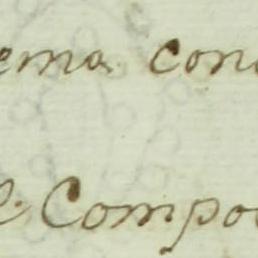 ema con
Compo